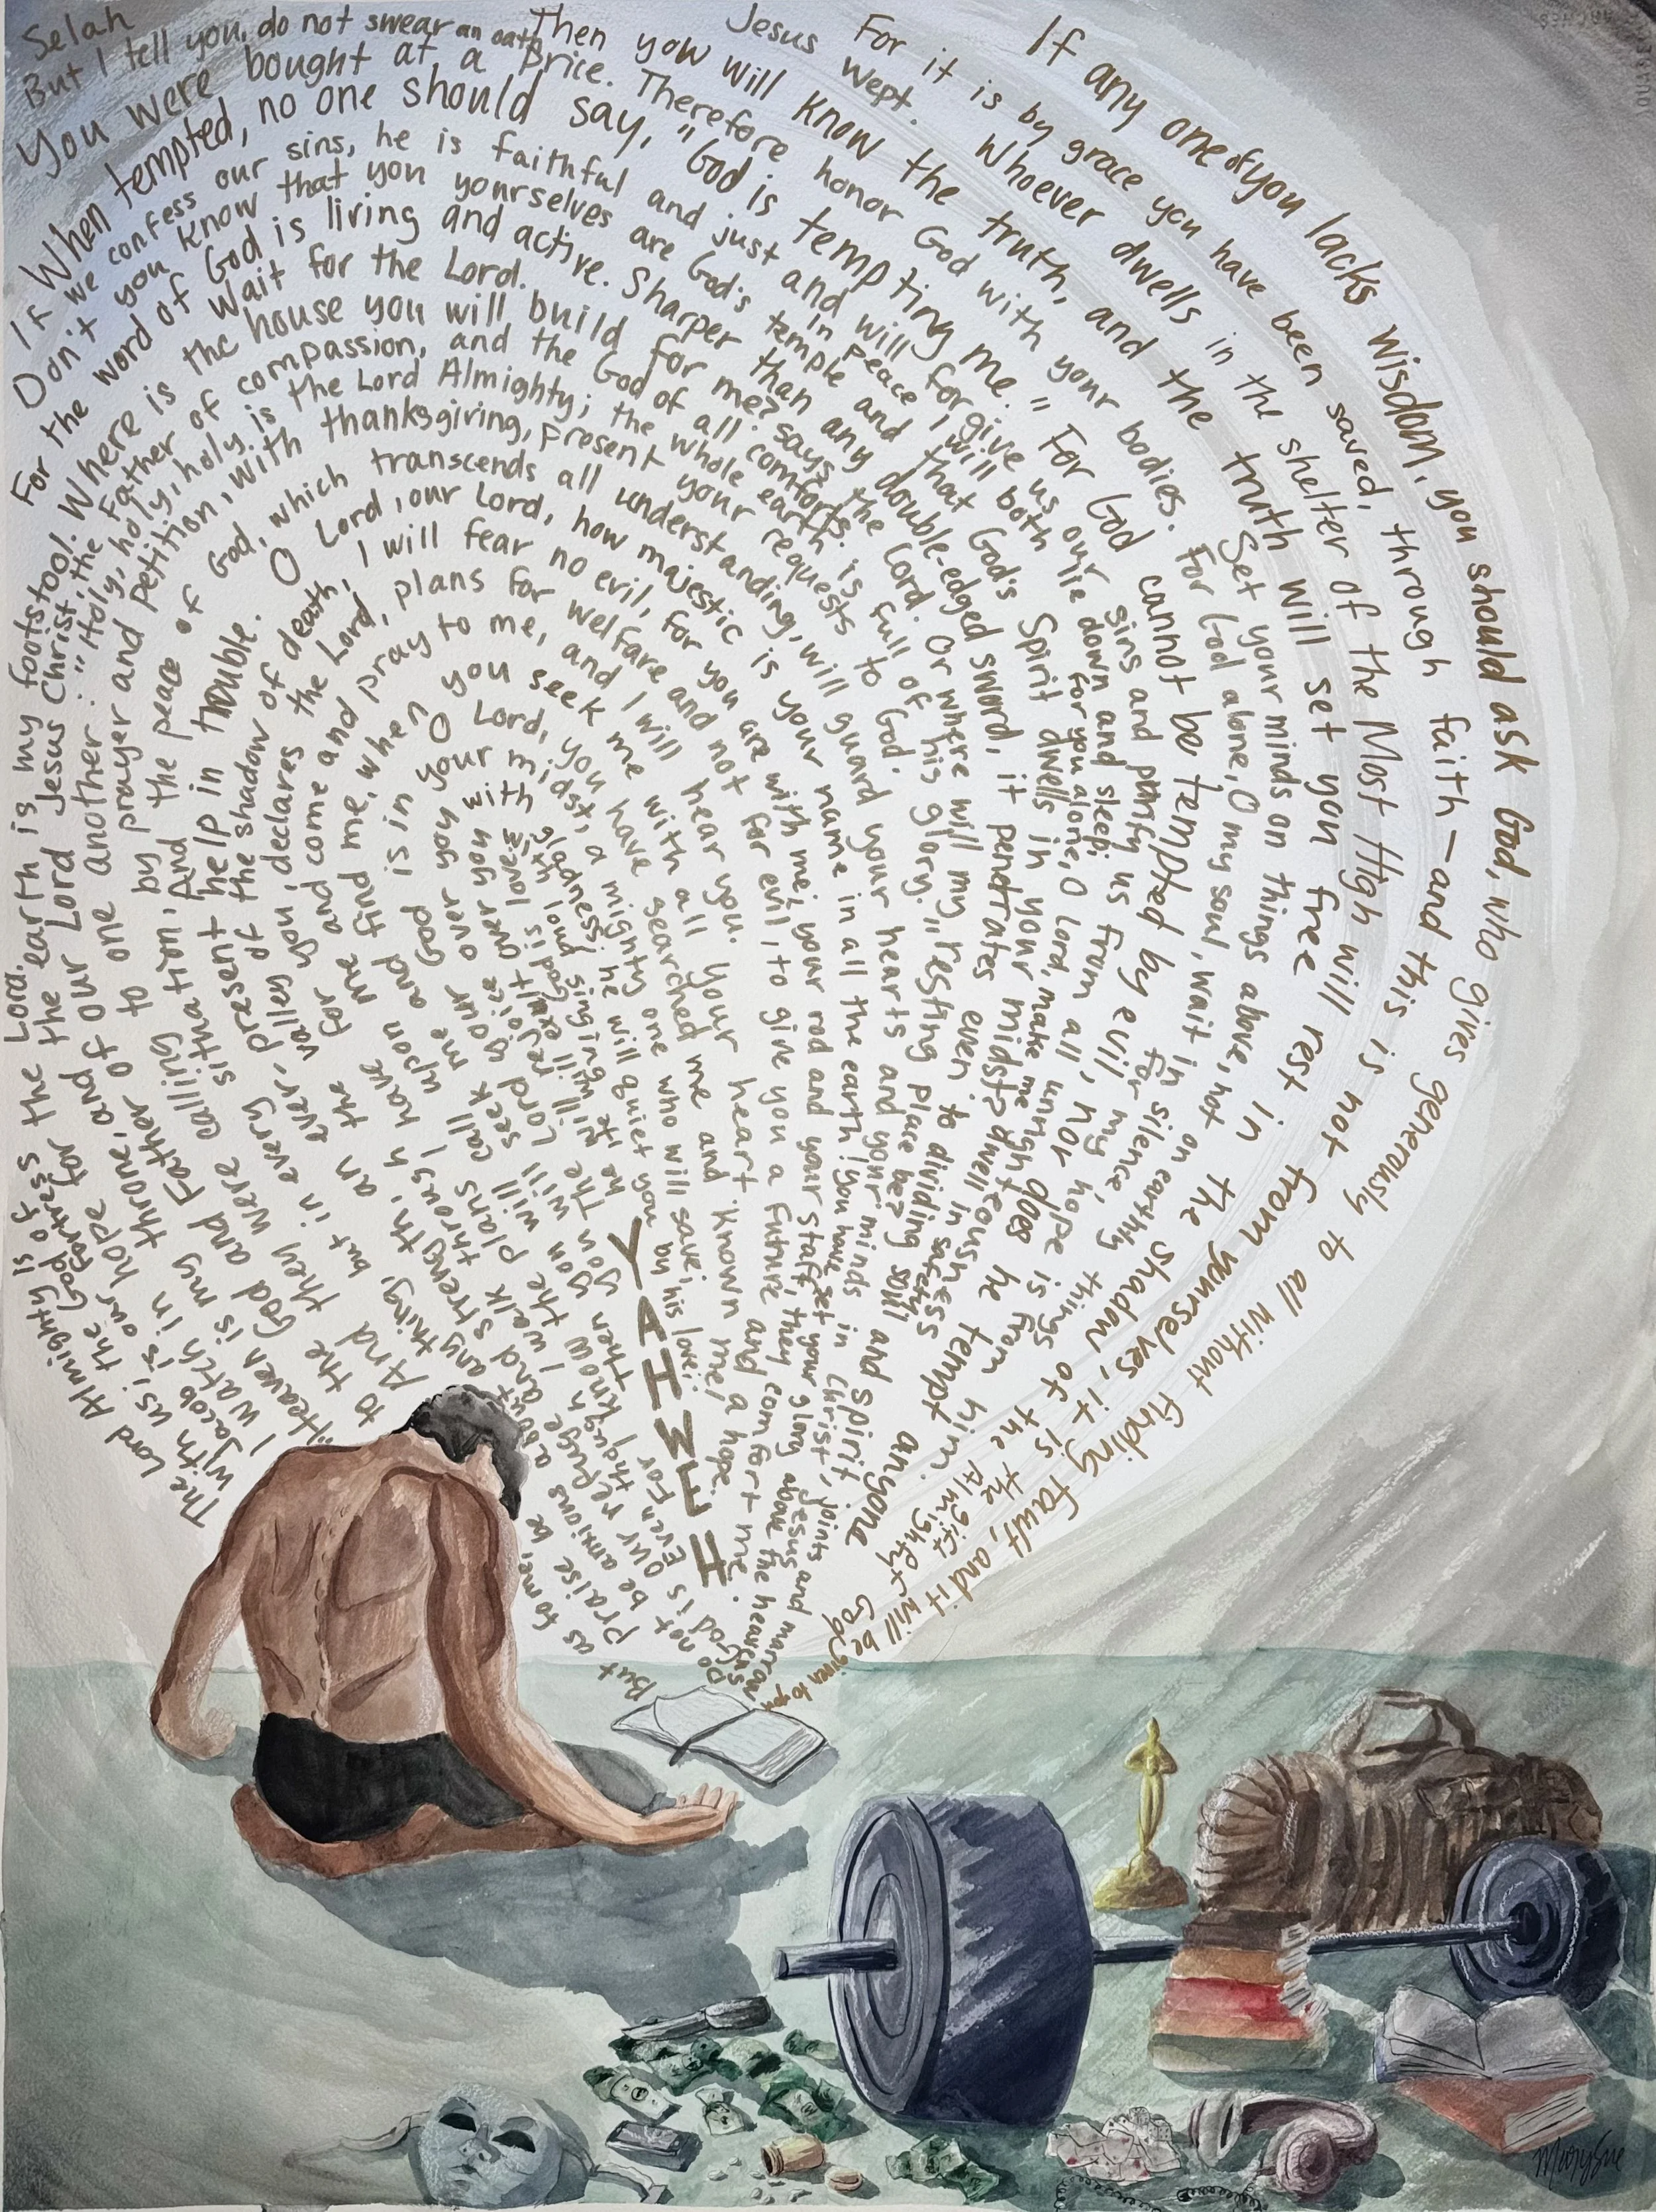 Selah
But I tell you, do not swear an oath
Jesus wept.
If any one of you lacks wisdom, you should ask God, who gives generously to all without finding fault, and it will be given to you
For it is by grace you have been saved, through faith — and this is not from yourselves, it is the gift of God
Whoever dwells in the shelter of the Most High will rest in the shadow of the Almighty
Then you will know the truth, and the truth will set you free
Set your minds on things above, not on earthly things
You were bought at a price. Therefore honor God with your bodies.
For God alone, O my soul, wait in silence, for my hope is from him.
When tempted, no one should say, "God is tempting me." For God cannot be tempted by evil, nor does he tempt anyone
If we confess our sins, he is faithful and just and will forgive us our sins and purify us from all unrighteousness
In peace I will both lie down and sleep; for you alone, O Lord, make me dwell in safety
Don't you know that you yourselves are God's temple and that God's Spirit dwells in your midst?
For the word of God is living and active. Sharper than any double-edged sword, it penetrates even to dividing soul and spirit, joints and marrow
Wait for the Lord.
"Heaven is my throne, and the earth is my footstool. Where is the house you will build for me? says the Lord. Or where will my resting place be?
Praise be to the God and Father of our Lord Jesus Christ, the Father of compassion, and the God of all comforts.
And they were calling to one another: "Holy, holy, holy is the Lord Almighty; the whole earth is full of his glory."
Do not be anxious about anything, but in every situation, by prayer and petition, with thanksgiving, present your requests to God.
And the peace of God, which transcends all understanding, will guard your hearts and your minds in Christ Jesus
God is our refuge and strength, an ever present help in trouble.
O Lord, our Lord, how majestic is your name in all the earth! you have set your glory above the heavens
Even though I walk through the valley of the shadow of death, I will fear no evil, for you are with me; your rod and your staff, they comfort me.
For I know the plans I have for you, declares the Lord, plans for welfare and not for evil, to give you a future and a hope.
Then you will call upon me and come and pray to me, and I will hear you.
you will seek me and find me, when you seek me with all your heart
O Lord, you have searched me and known me!
The Lord your God is in your midst, a mighty one who will save; he will rejoice over you with gladness; he will quiet you by his love; he will exult over you with loud singing
But as for me, I watch in hope for the Lord.
The Lord Almighty is with us; the God of Jacob is our fortress
YAHWEH
MarySue